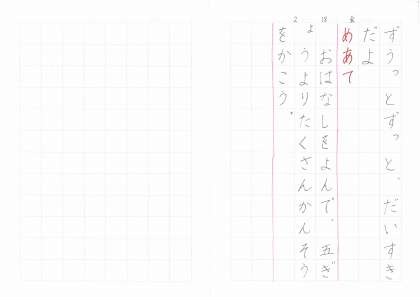 ずうっとずっと、だいすき
だよ
めあて
おはなしをよんで、五ぎ
ょうよりたくさんかんそう
をかこう。